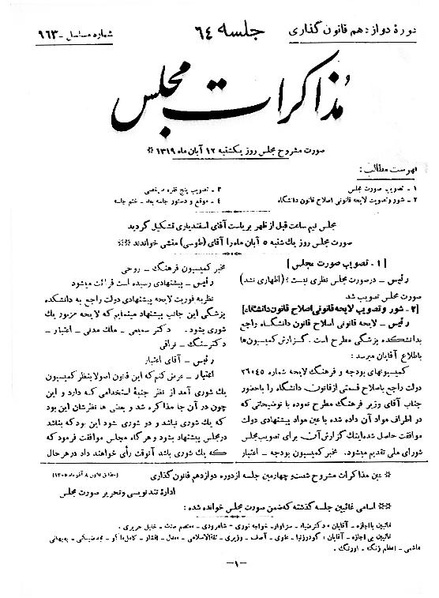 دورهٔ دوازدهم قانون گذاری
جلسه ٦٤
شماره مسلسل - ۹٦۳
مذاکرات مجلس
صورت مشروح مجلس روز یکشنبه ۱۲ آبان ماه ۱۳۱۹ *
فهرست مطالب:
۱ - تصویب صورت مجلس
۲ - شور و تصویب لایحه قانونی اصلاح قانون دانشگاه
۳ - تصویب پنج فقره مرخصی
٤ - موقع و دستور جلسه بعد - ختم جلسه
مجلس نیم ساعت قبل از ظهر بریاست آقای اسفندیاری تشکیل گردید
صورت مجلس روز یک شنبه ٥ آبان ماه را آقای (طوسی) منشی خواندند **
[ ۱ - تصویب صورت مجلس ]
رئیس - در صورت مجلس نظری نیست؟ (اظهاری نشد)
صورت مجلس تصویب شد
[۲ - شور و تصویب لایحه قانونی اصلاح قانون دانشگاه]
رئیس - لایحه قانونی اصلاح قانون دانشگاه راجع
بدانشکده پزشکی مطرح است. گزارش کمیسیون ها
باطلاع آقایان میرسد:
کمیسیونهای بودجه و فرهنگ لایحه شماره ۲٦۰٤٥
دولت راجع باصلاح قسمتی از قانون دانشگاه را با حضور
جناب آقای وزیر فرهنگ مطرح نموده با توضیحاتی که
در اطراف مواد آن داده شد با عین مواد پیشنهادی دولت
موافقت حاصل شد اینك گزارش آن برای تصویب مجلس
شورای ملی تقدیم میشود. مخبر کمیسیون بودجه - اعتبار
مخبر کمیسیون فرهنگ - روحی
رئیس - پیشنهادی رسیده است قرائت میشود
نظریه فوریت لایحه پیشنهادی دولت راجع به دانشکده
پزشکی این جانب پیشنهاد مینمایم که لایحه مزبور یك
شوری بشود. دکتر سمیعی - ملك مدنی - اعتبار -
دکتر سنگ - نراقی
رئیس - آقای اعتبار
اعتبار - عرض کنم که این قانون اصولا بنظر کمیسیون
یك شوری آمد از نظر جنبهٔ استخدامی که دارد و این
چون در آن جا مذاکره شد و بعضی ها نظرشان این بود
که یك شوری نباشد و دو شوری شود این بود که بنا شد
در مجلس پیشنهاد بشود و هر گاه مجلس موافقت فرمود که
یك شوری باشد آنوقت رأی خواهند داد در هر حال
* عین مذاکرات مشروح شصت و چهارمین جلسه از دوره دوازدهم قانون گذاری
اداره تندنویسی و تحریر صورت مجلس
** اسامی غائبین جلسه گذشته که ضمن صورت مجلس خوانده شده:
غائبین بی اجازه - آقایان:
- ۱ -